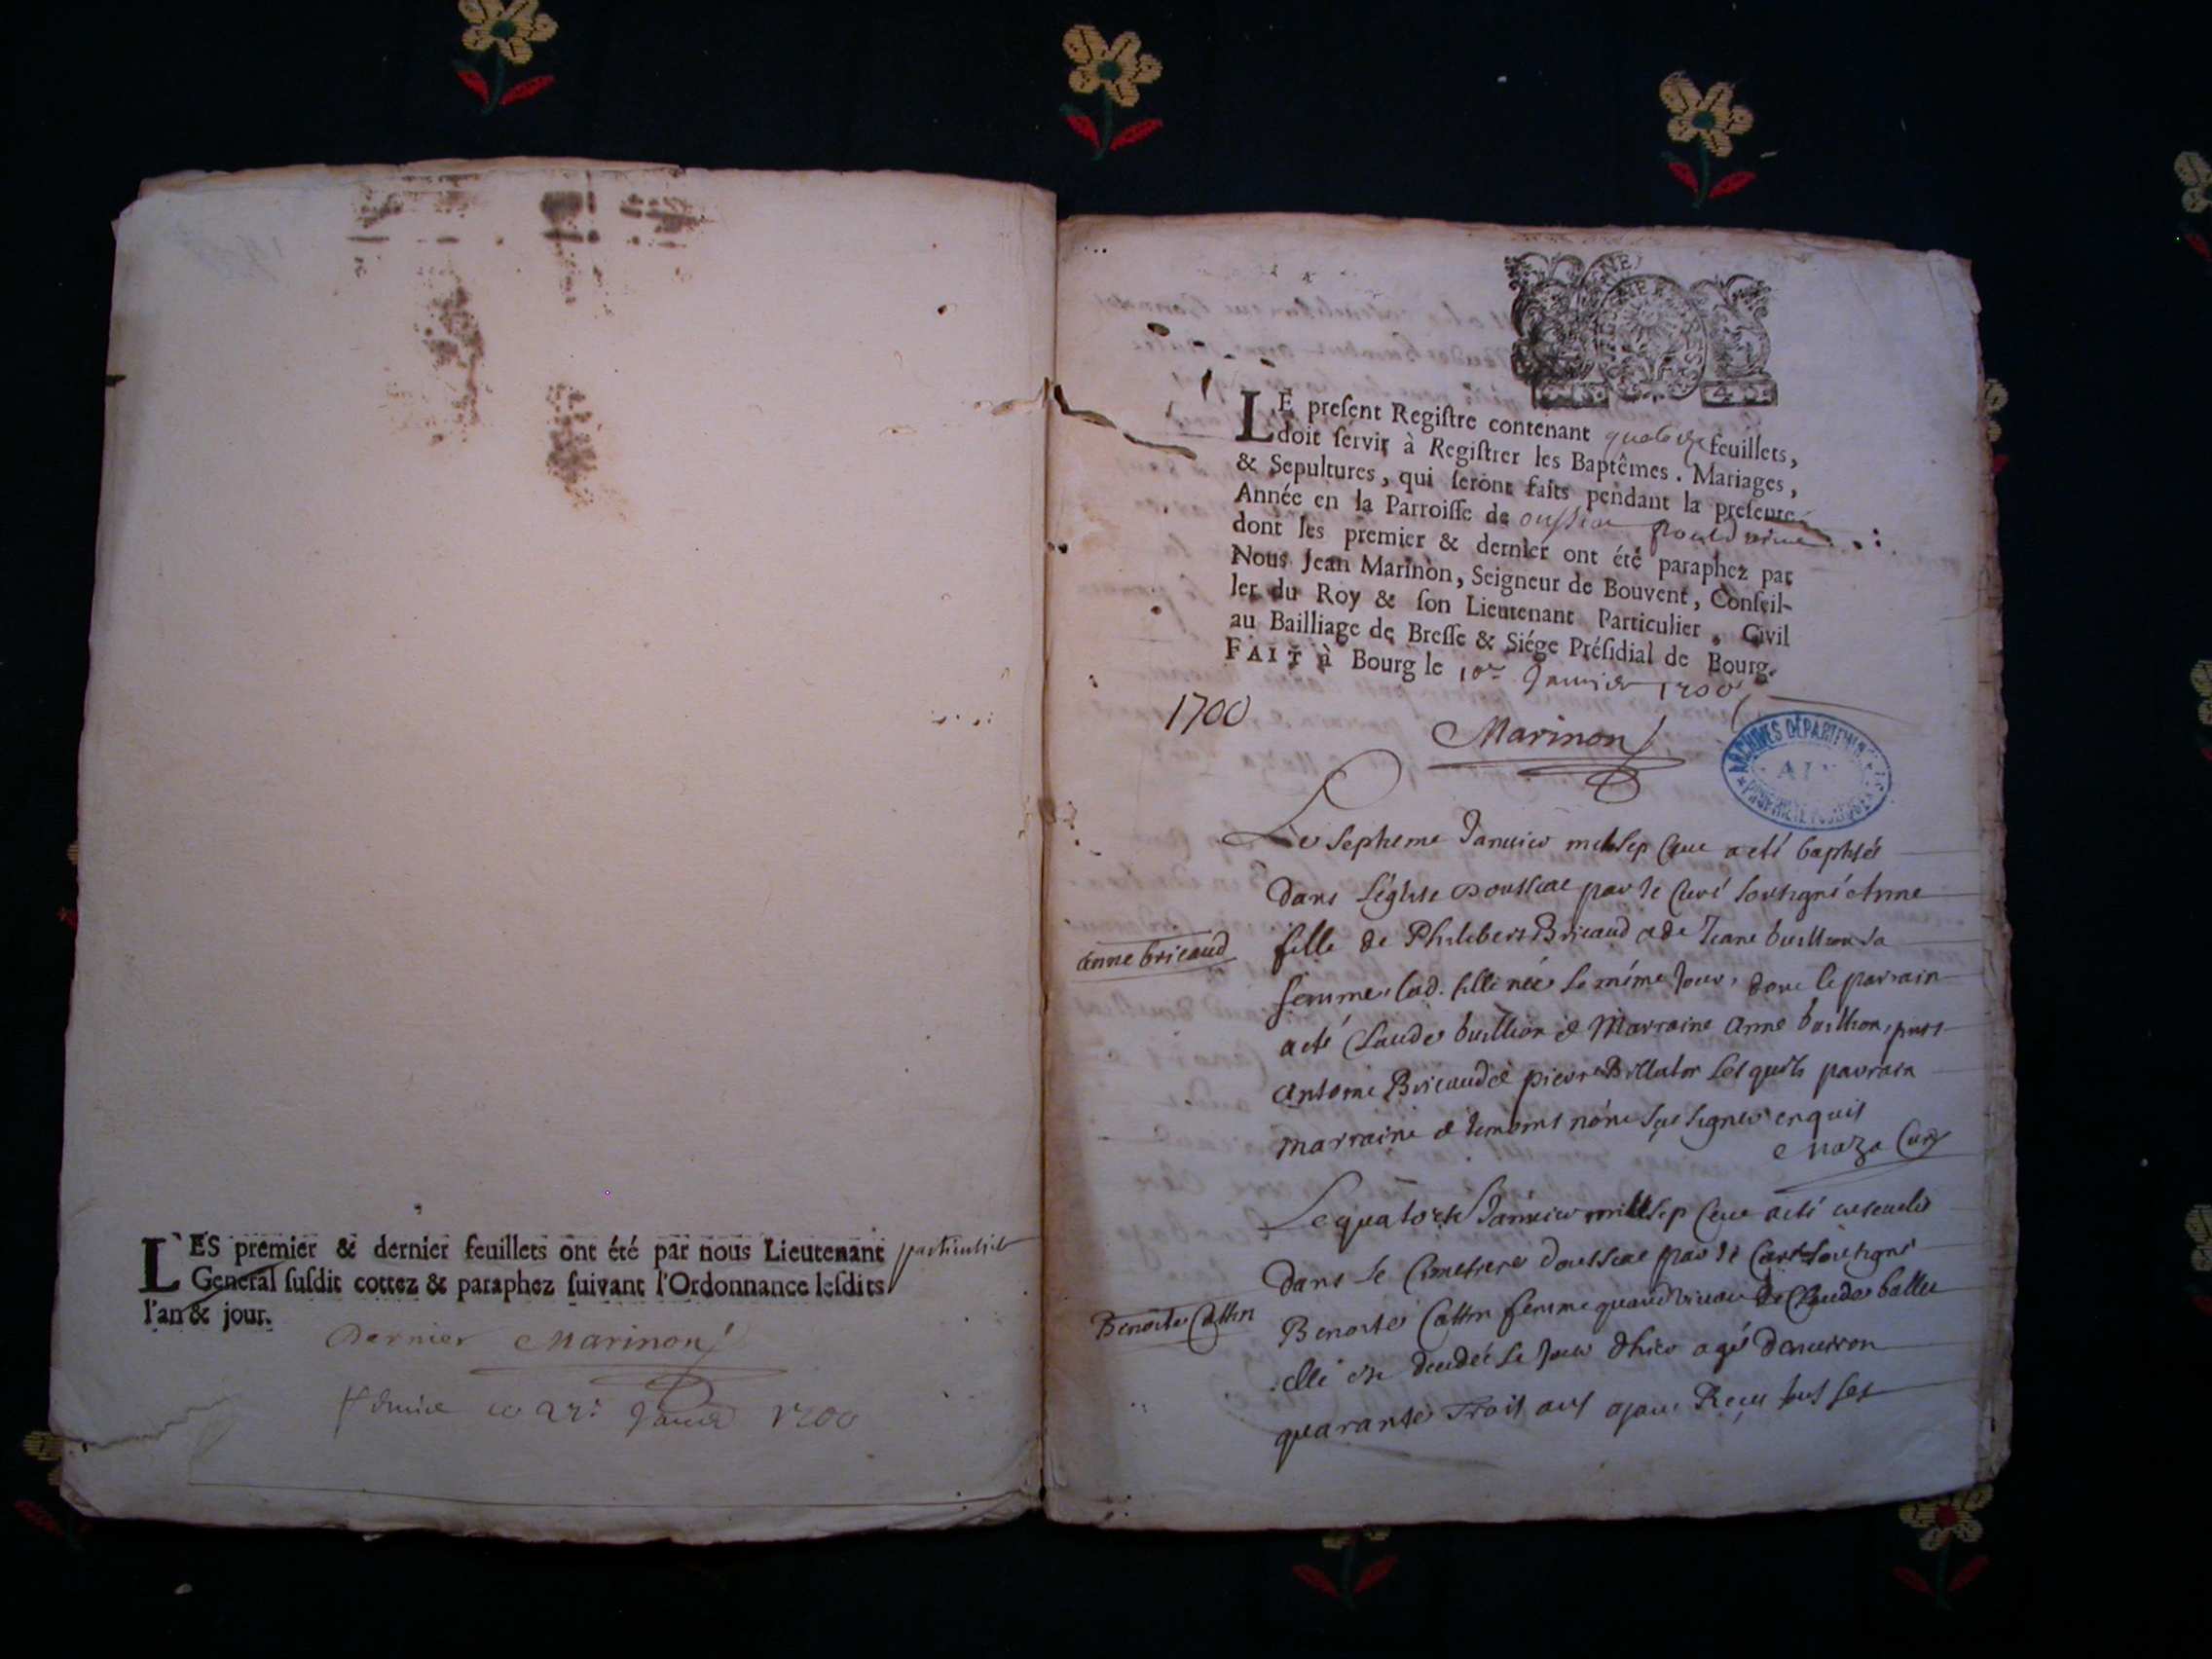 LES premier & dernier feuillets ont été par nous Lieutenant particulier
General susdit cottez & paraphez suivant l'Ordonnance lesdits
l'an & jour.
Dernier Marinon
1700
LE present Registre contenant feuillets,
doit servir à Registrer les Baptêmes, Mariages,
& Sepultures, qui seront faits pendant la presente
Année en la Parroisse de
dont les premier & dernier ont été paraphez par
Nous Jean Marinon, Seigneur de Bouvent, Conseil-
ler du Roy & son Lieutenant Particulier, Civil
au Bailliage de Bresse & Siége Présidial de Bourg.
FAIT à Bourg le Janvier 1700
1700
Marinon
ARCHIVES DÉPARTEMENTALES
AIN
PROPRIÉTÉ PUBLIQUE
Le septieme Janvier mil sep Cens a eté baptisée
dans L'eglise doussiat par le Curé soussigné Anne
anne bricaud
fille de Philibert Bricaud & de Jeane buillion sa
femme, lad. fille née le méme Jour, dont le parrain
a eté Claude buillion & Marraine anne buillion,
antoine Bricaud & pierre Billator Lesquels parrain
marraine & temoins n'ont sçu signer enquis
Maza Curé
Le quatorze Janvier mill sep Cens a eté ensevelie
dans le Cimetiere doussiat par le Curé soussigné
Benoite Cattin
Benoite Cattin femme quand vivoit de Claude ballet
elle est decedée le Jour dhier agée denviron
quarante Trois ans ayant Reçu tous ses